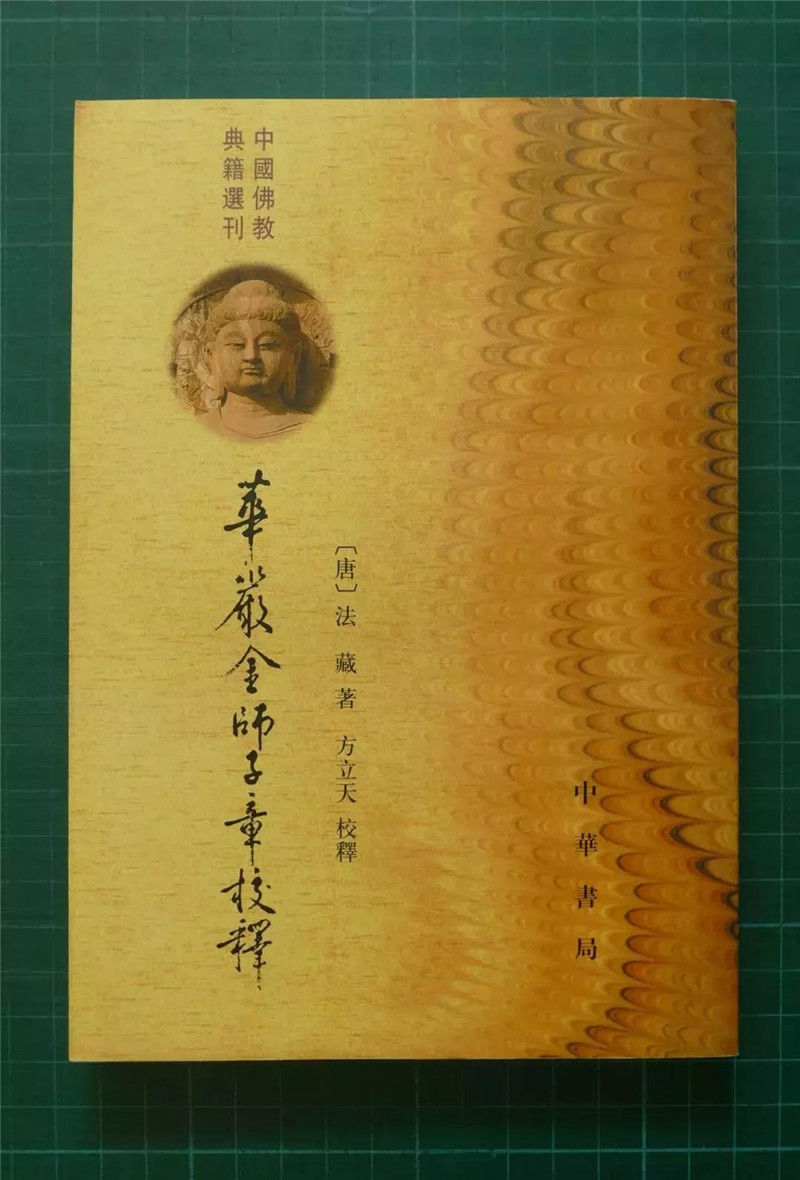 中國佛教
典籍選刊
華嚴金師子章校釋
〔唐〕法藏著 方立天 校釋
中華書局